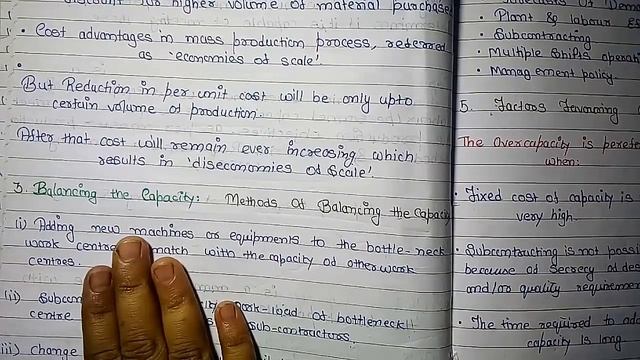 discount for higher volume of material purchase
• Cost advantages in mass production process, refereed
as 'economies of scale'.
• But Reduction in per unit cost will be only upto
certain volume of production.
After that cost will remain ever increasing which
results in 'diseconomies of Scale'.
3. Balancing the Capacity: Methods Of Balancing the Capacity
(i) Adding new machines or equipments to the bottle-neck
work centre match with the capacity of other work
centres.
(ii) work-load of bottleneck
centre sub-contractors.
iii) Change
Of Dema
• Plant & labour
• Subcontracting
• Multiple shifts operati
• Management policy.
5. Factors Favouring
The Overcapacity is
when:
• Fixed cost of capacity is
very high.
• Subcontracting is not possi
because of secrecy of de
and/or quality requiremen
• The time required to add
capacity is long